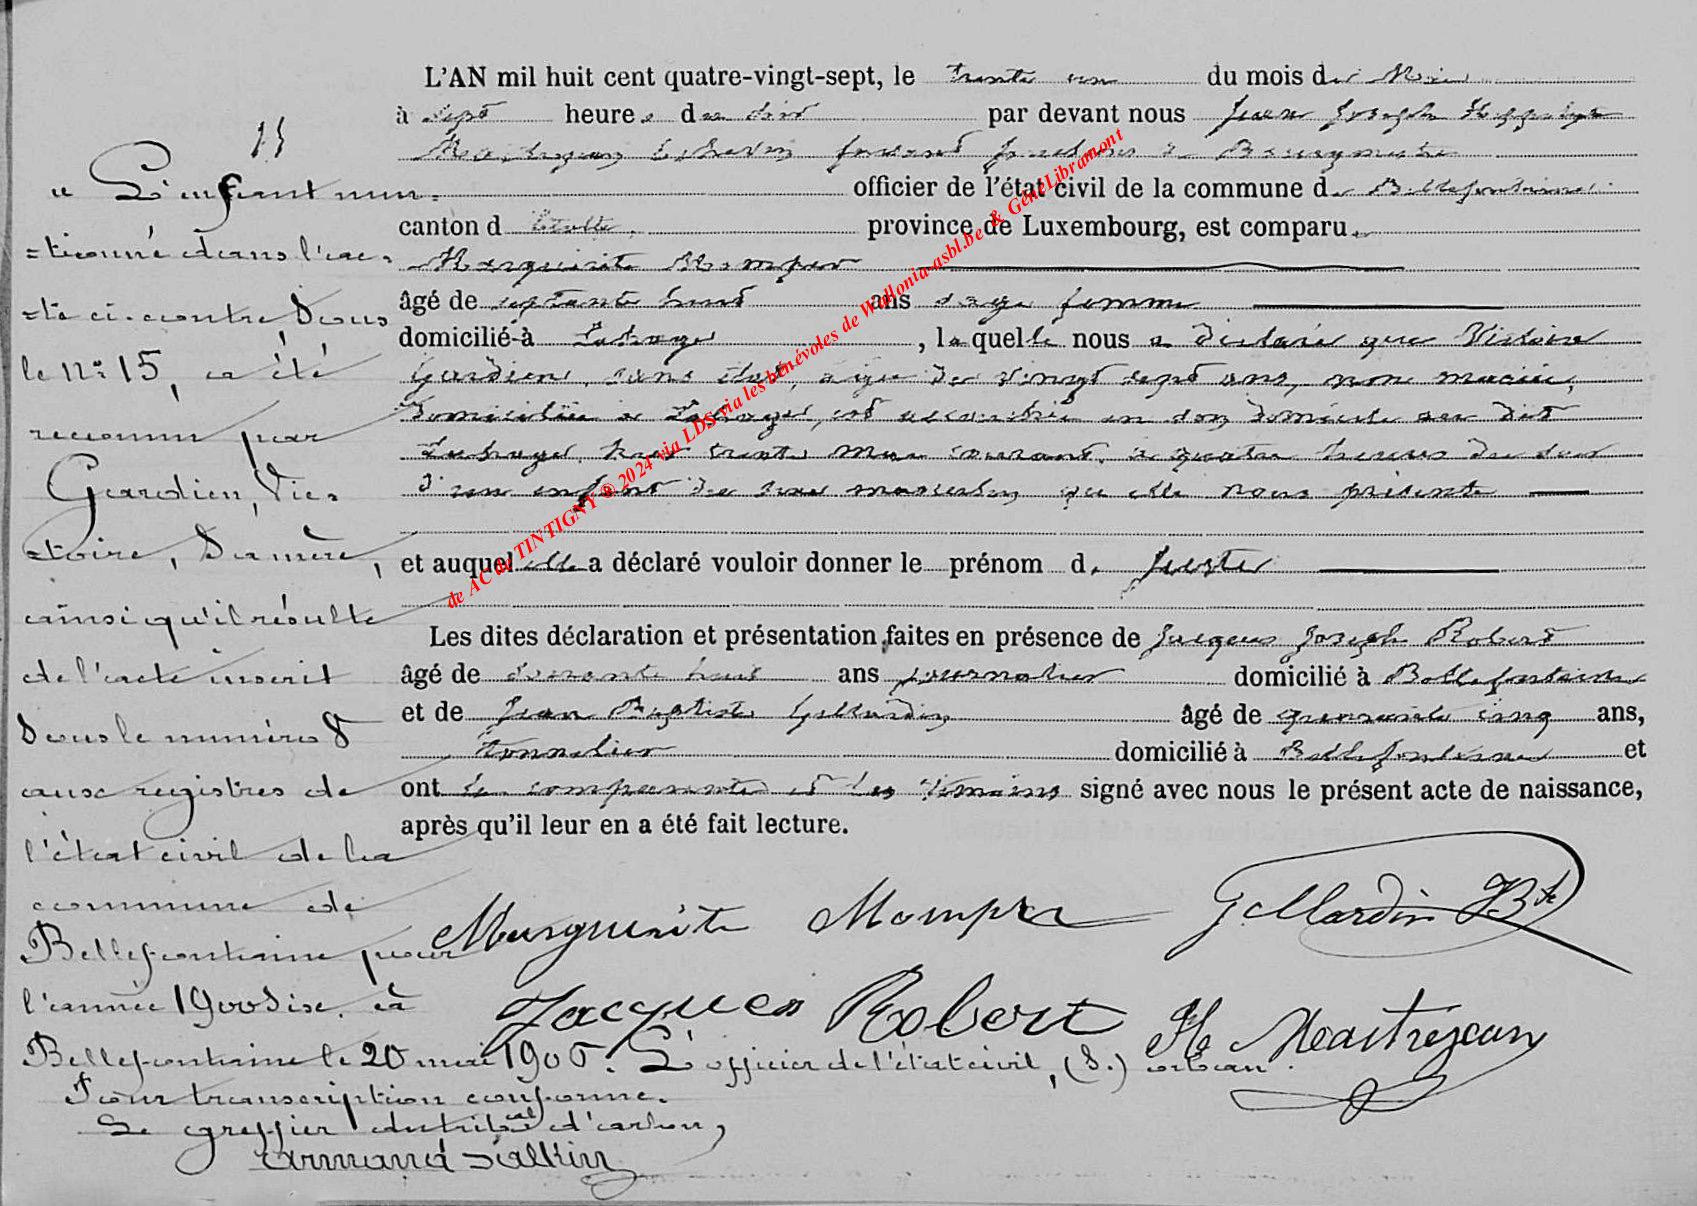 15
« L'enfant men-
=tionné dans l'ac-
=te ci-contre, sous
le n° 15, a été
reconnu par
Gardien, Vic-
=toire, sa mère,
ainsi qu'il résulte
de l'acte inscrit
sous le numéro 8
aux registres de
l'état civil de la
commune de
Bellefontaine pour
l'année 1900 six. à
Bellefontaine le 20 mai 1906. L'officier de l'état civil, (S.)
Pour transcription conforme.
Le greffier du tribal d'arlon,
L'AN mil huit cent quatre-vingt-sept, le trente un du mois de Mai
à sept heures du soir par devant nous Jean Joseph Hippolyte
Maitrejean Echevin faisant fonctions de Bourgmestre
officier de l'état civil de la commune de Bellefontaine
canton d'Etalle, province de Luxembourg, est comparu
Marguerite Mompez
âgé de septante huit ans sage femme
domicilié à Lahage, laquelle nous a déclaré que Victoire
Gardien, sans état, agée de vingt sept ans, non mariée,
domiciliée à Lahage, est accouchée en son domicile au dit
Lahage, hier trente Mai courant, à quatre heures du soir
d'un enfant du sexe masculin qu'elle nous présente
et auquel elle a déclaré vouloir donner le prénom de Juste
Les dites déclaration et présentation faites en présence de Jacques Joseph Robert
âgé de soixante huit ans journalier domicilié à Bellefontaine
et de Jean Baptiste Gillardin âgé de quarante cinq ans,
tonnelier domicilié à Bellefontaine et
ont la comparante et les témoins signé avec nous le présent acte de naissance,
après qu'il leur en a été fait lecture.
Marguerite Gillardin JBte
Jacques Robert H Maitrejean
de AC de TINTIGNY ® 2024 via LDS via les bénévoles de Wallonia-asbl.be & GénéLibramont